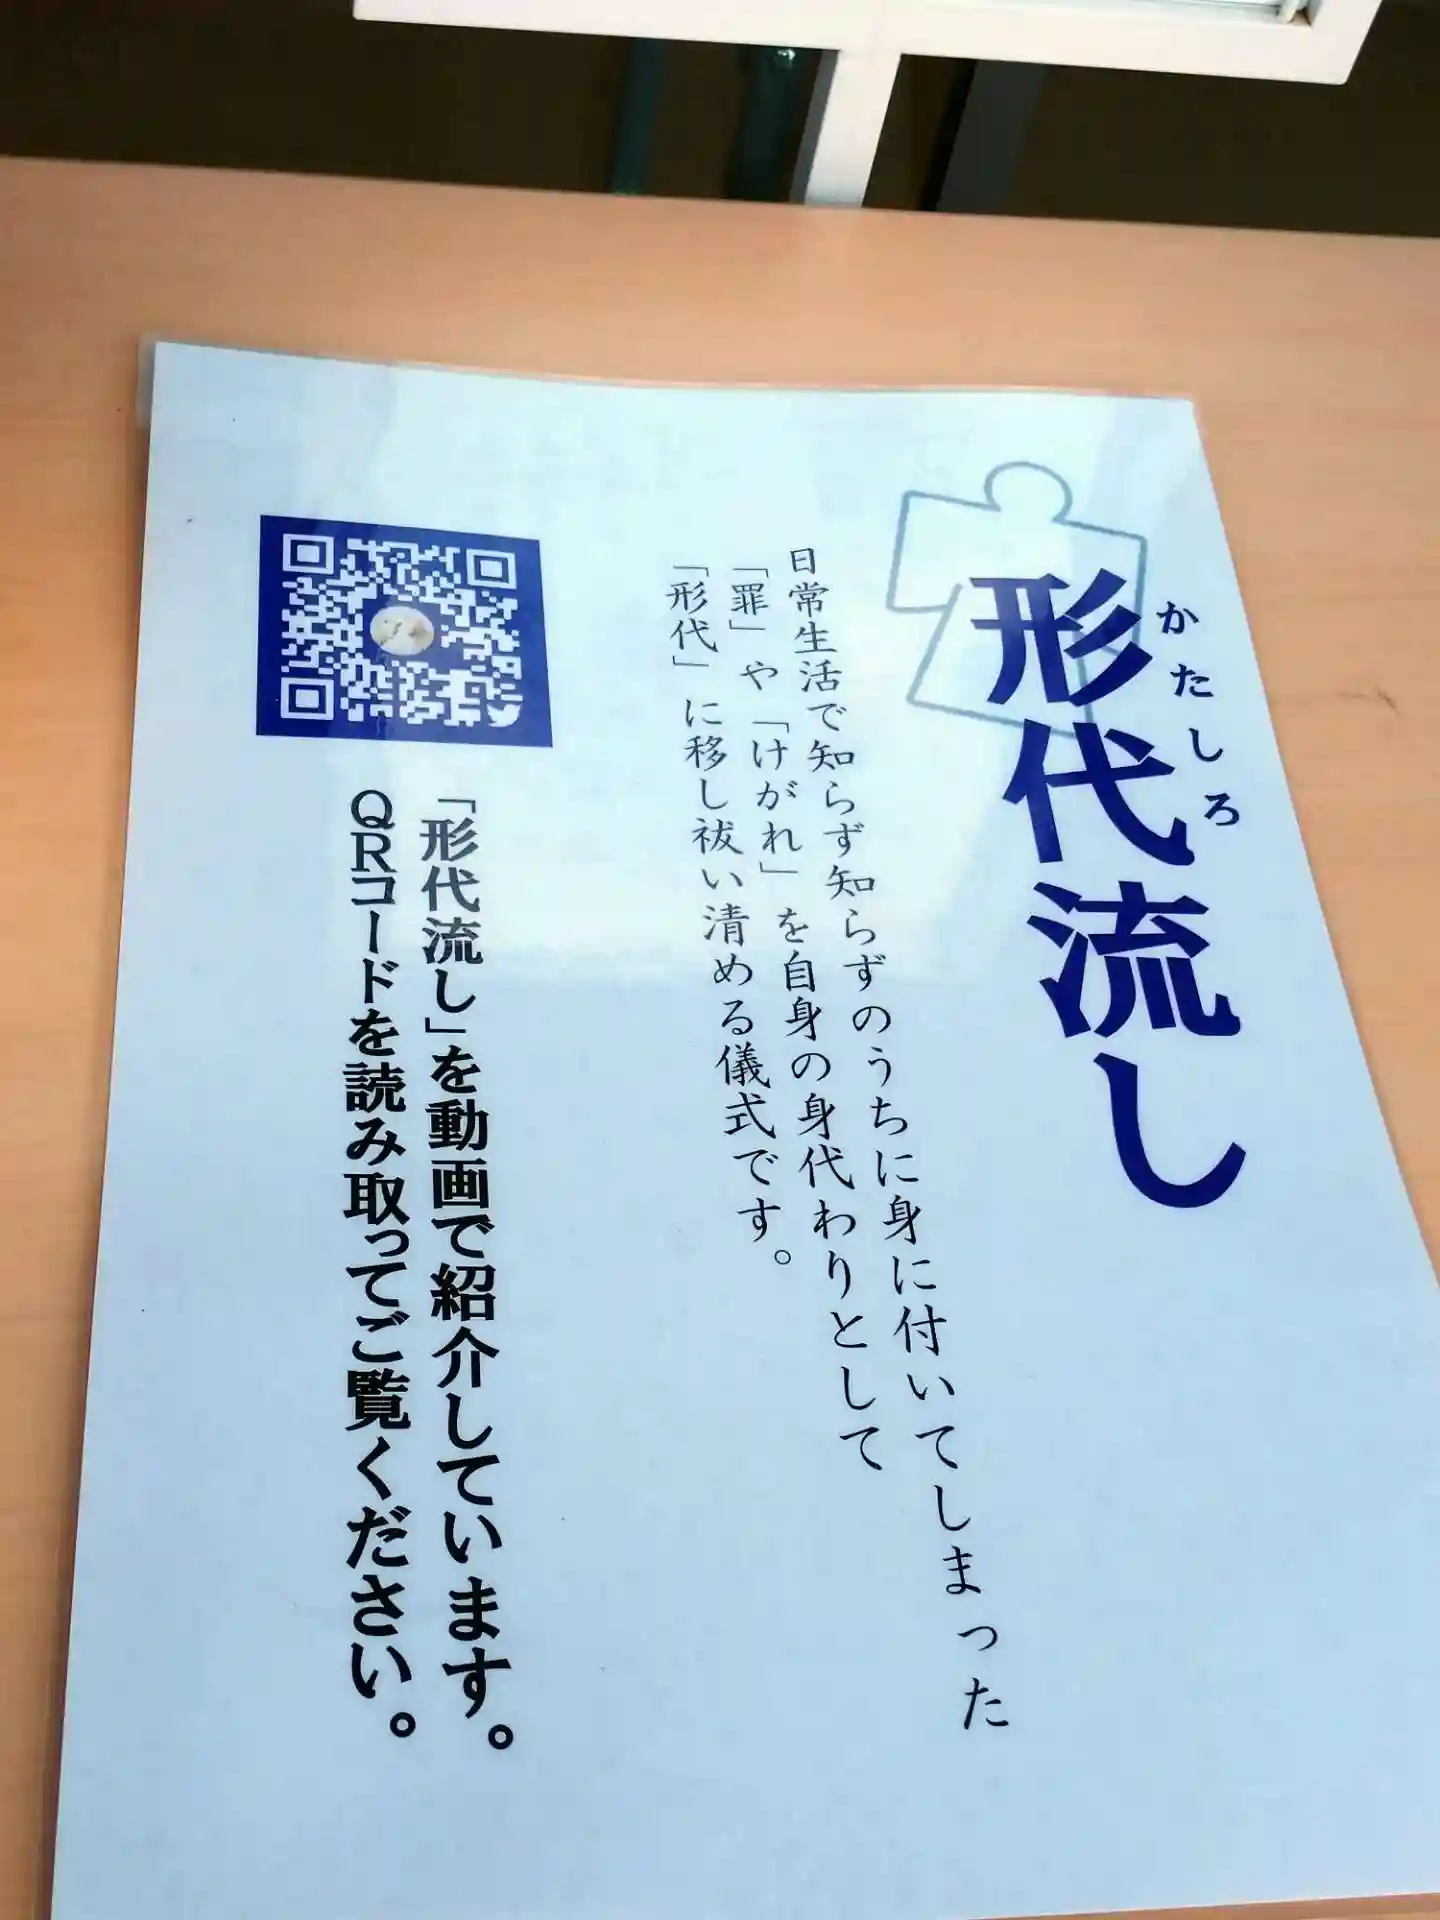 形代流し
かたしろ
日常生活で知らず知らずのうちに身に付いてしまった
「罪」や「けがれ」を自身の身代わりとして
「形代」に移し祓い清める儀式です。
「形代流し」を動画で紹介しています。
QRコードを読み取ってご覧ください。